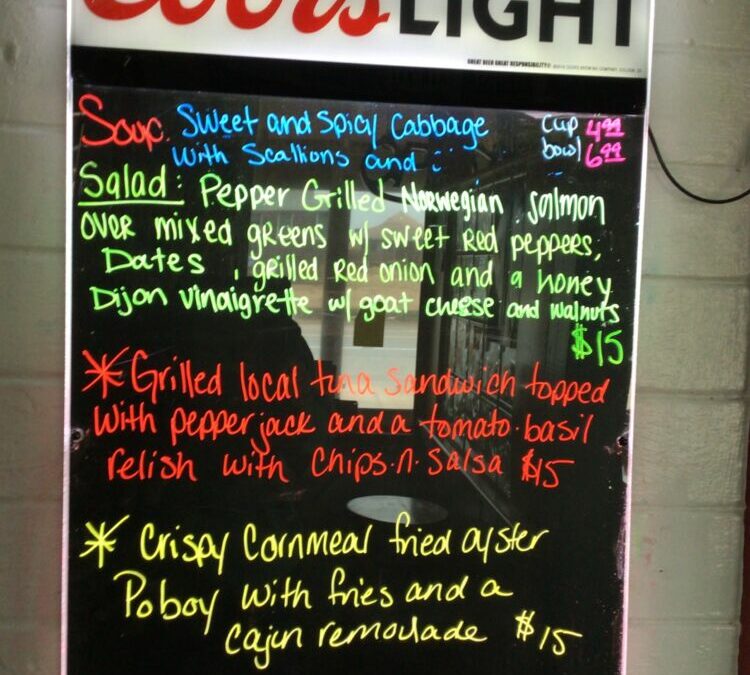 Coors LIGHT
GREAT BEER GREAT RESPONSIBILITY®
Soup. Sweet and Spicy Cabbage cup 4.99
with Scallions and bowl 6.99
Salad: Pepper Grilled Norwegian Salmon
over mixed greens w/ sweet Red peppers,
Dates, grilled Red onion and a honey
Dijon Vinaigrette w/ goat cheese and walnuts
$15
* Grilled local tuna sandwich topped
with pepper jack and a tomato-basil
relish with Chips.n.Salsa $15
* Crispy Cornmeal fried oyster
Poboy with fries and a
cajun remoulade $15